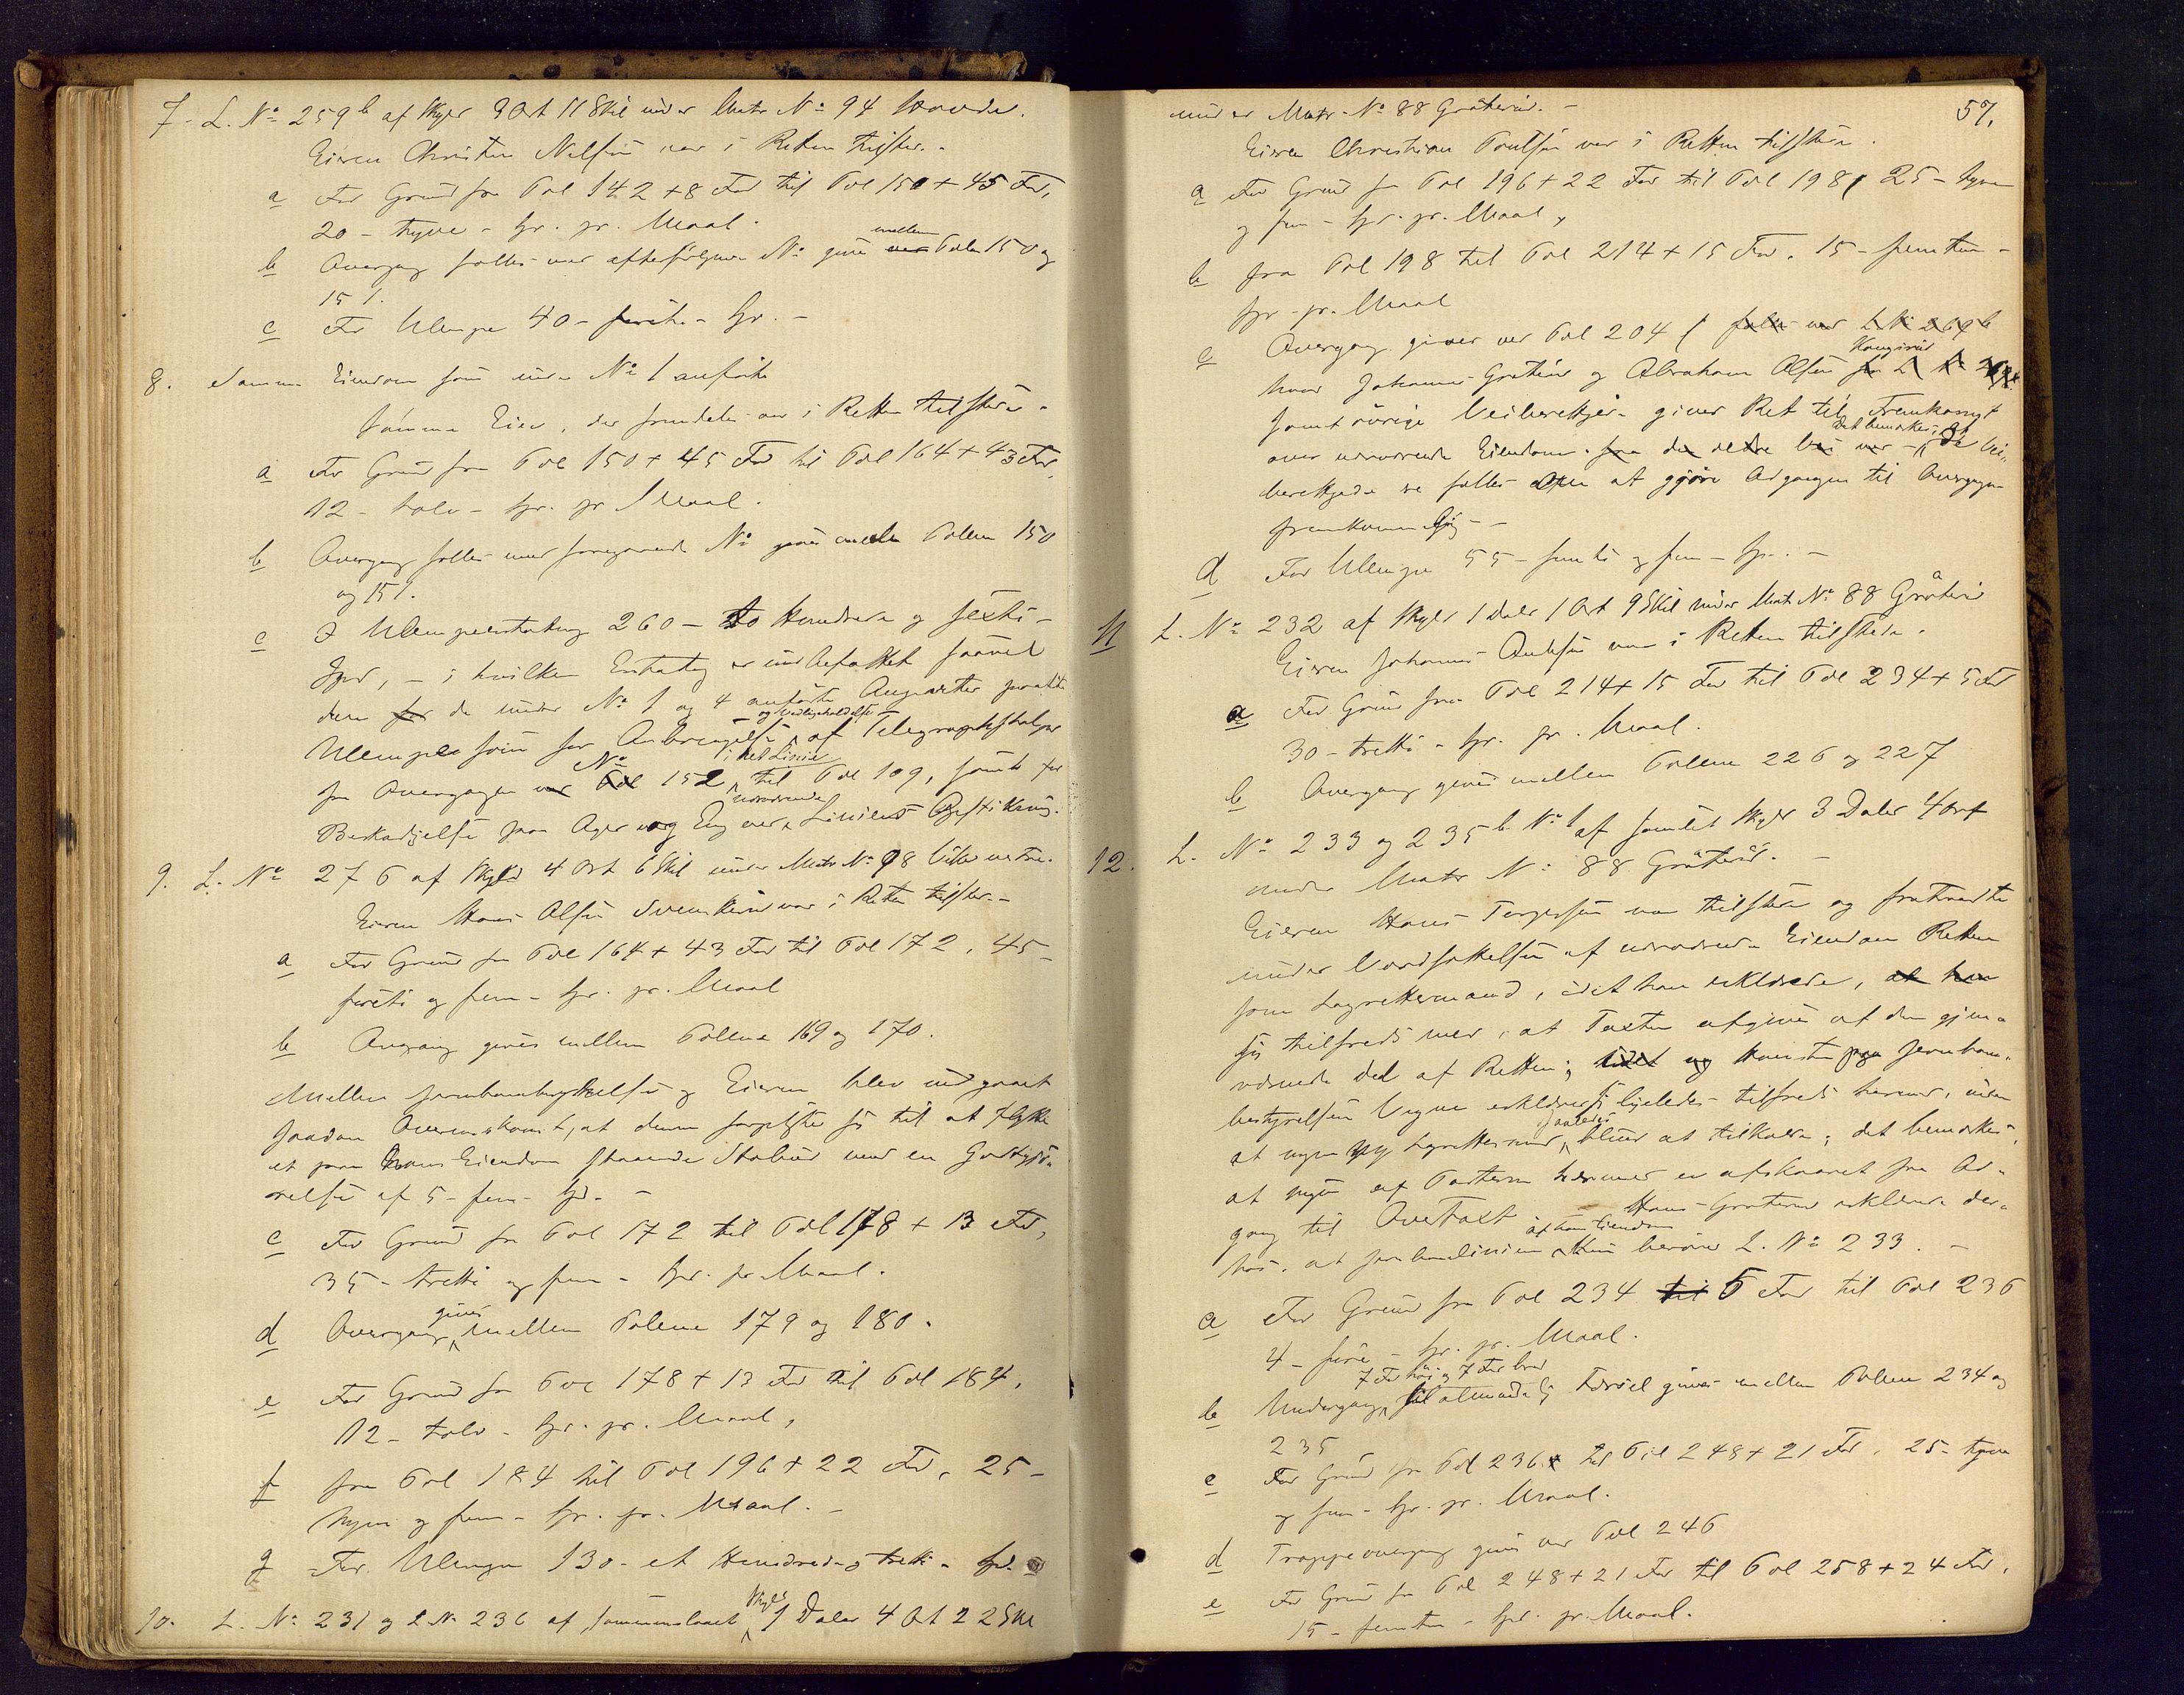 7. L. No 259b af Skyld 3 Ort 11 Skil under Matr No 94 Hovde.
Eieren Christen Nilsen var i Retten tilsted.
a For Grund fra Pæl 142 + 8 Fod til Pæl 150 + 45 Fod,
20 - tyve - Spd. pr. Maal.
b Overgang fælles med efterfølgende No gives mellem ved Pælen 150 og
151.
c For Ulempe 40 - firti - Spd. -
8. Samme Eiendom som under No 1 anført
Samme Eier, der fremdeles var i Retten tilstede.
a For Grund fra Pæl 150 + 45 Fod til Pæl 164 + 43 Fod,
12 - tolv - Spd. pr Maal.
b Overgang fælles med foregaaende No gives mellem Pælene 150
og 151.
c I Ulempeerstatning 260 - to Hundrede og sexti -
Spd, - i hvilken Erstatning er indbefattet saavel
den for de under No 1 og 4 anførte
Ulemper som for Anbringelse og Vedligeholdelse af Telegraphstolper
fra Overgangen ved Pæl No 152 i ret Linie til Pæl 109, samt for
Beskadigelse paa Ager og Eng ved nærværende Linies Opstikning.
9. L. No 276 af Skyld 4 Ort 6 Skil under Matr No 98
Eieren Hans Olsen Svenskerud var i Retten tilsted. -
a For Grund fra Pæl 164 + 43 Fod til Pæl 172, 45 -
firti og fem - Spd. pr. Maal
b Overgang gives mellem Pælene 169 og 170.
Mellem Jernbanebestyrelsen og Eieren blev indgaaet
saadan Overenskomst, at denne forpligter sig til at flytte
et paa hans Eiendom staaende Stabur mod en Godtgjø-
relse af 5 - fem - Spd. -
c For Grund fra Pæl 172 til Pæl 178 + 13 Fod,
35 - tretti og fem - Spd. pr Maal.
d Overgang gives mellem Pælene 179 og 180.
e For Grund fra Pæl 178 + 13 Fod til Pæl 184,
12 - tolv - Spd. pr. Maal,
f fra Pæl 184 til Pæl 196 + 22 Fod, 25 -
tyve og fem - Spd. pr. Maal. -
g For Ulempe 130 - et Hundrede og tretti - Spd.
10. L. No 231 og L No 236 af sammenlagt Skyld 1 Daler 4 Ort 22 Skil
57.
under Matr No 88 Gråterud. -
Eieren Christian Poulsen var i Retten tilstede.
a For Grund fra Pæl 196 + 22 Fod til Pæl 198, 25 - tyve
og fem - Spd. pr. Maal,
b fra Pæl 198 til Pæl 214 + 15 Fod, 15 - femten -
Spd. pr. Maal
c Overgang gives ved Pæl 204 fælles med L No 269b
hvor Johannes Gråterud og Abraham Olsen
samt øvrige Veiberettigede gives Ret til Fremkomst
over nærværende Eiendom. fra den ældre Vei ved - det bemærkes, at de Vei-
berettigede ere fælles om at gjøre Adgangen til Overgangen
fremkommelig -
d For Ulempe 55 - femti og fem - Spd. -
11 L. No 232 af Skyld 1 Daler 1 Ort 9 Skil under Matr No 88 Gråterud
Eieren Johannes var i Retten tilstede.
a For Grund fra Pæl 214 + 15 Fod til Pæl 234 + 5 Fod
30 - tretti - Spd. pr. Maal.
b Overgang gives mellem Pælene 226 og 227
12. L. No 233 og 235b No 1 af samlet Skyld 3 Daler 4 Ort
under Matr No 88 Gråterud. -
Eieren Hans Torgersen var tilstede og fratraadte
under Værdsættelsen af nærværende Eiendom Retten
som Lagrettesmand, idet han erklærede, at han
sig tilfreds med, at Taxten afgives af den gjen-
værende del af Retten; paa Jernbane-
bestyrelsens Vegne erklæredes sig ligeledes tilfreds hermed, uden
at nogen ny Lagrettesmand saaledes bliver at tilkalde; det bemærkes,
at ingen af Parterne hermed er afskaaret fra Ad-
gang til Overtaxt. - Hans Gråterud erklærede der-
hos, at Jernbanelinien af hans Eiendom kun berører L. No 233. -
a For Grund fra Pæl 234 til 5 Fod til Pæl 236
4 - fire - Spd. pr. Maal.
b Undergang 7 Fod høi og 7 Fod bred til almindelig Færdsel gives mellem Pælene 234 og
235
c For Grund fra Pæl 236 til Pæl 248 + 21 Fod, 25 - tyve
og fem - Spd. pr. Maal.
d Trappeovergang gives ved Pæl 246
e For Grund fra Pæl 248 + 21 Fod til Pæl 258 + 24 Fod,
15 - femten - Spd. pr. Maal.